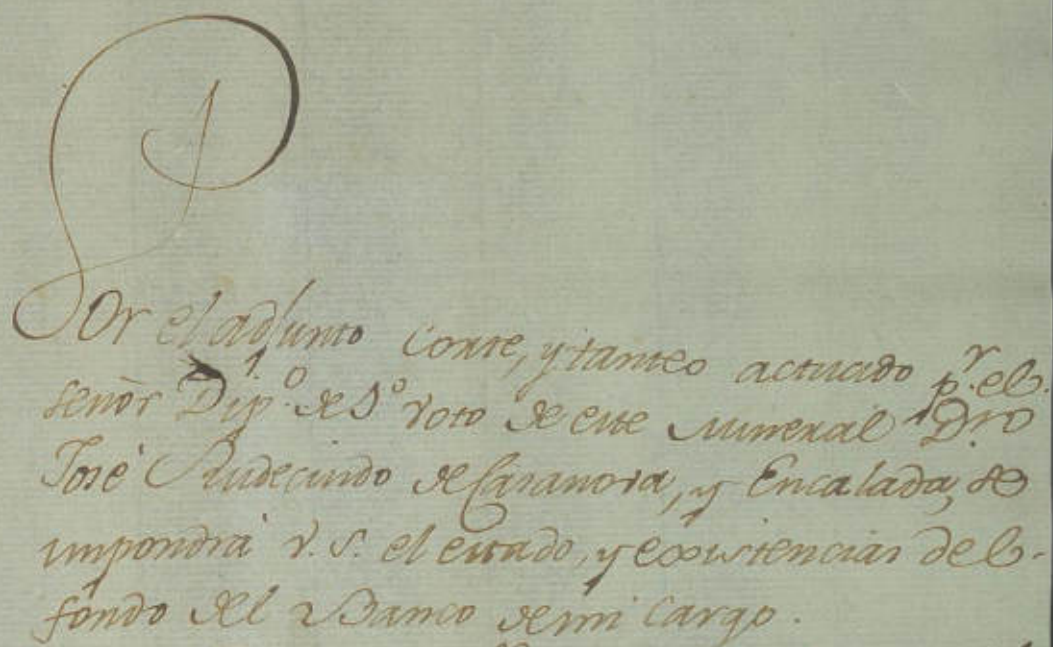 Por el adjunto Corte, y tanteo actuado p.r el
Señor Dip.o de 1.o Voto de este Mineral D.r D.
José Rudecindo de Casanova, y Encalada, se
impondrá V. S. el estado, y existencias del
fondo del Banco de mi Cargo.